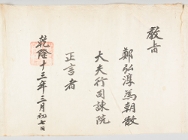 教旨
鄭弘淳爲朝散
大夫行司諫院
正言者
乾隆十三年二月初七日